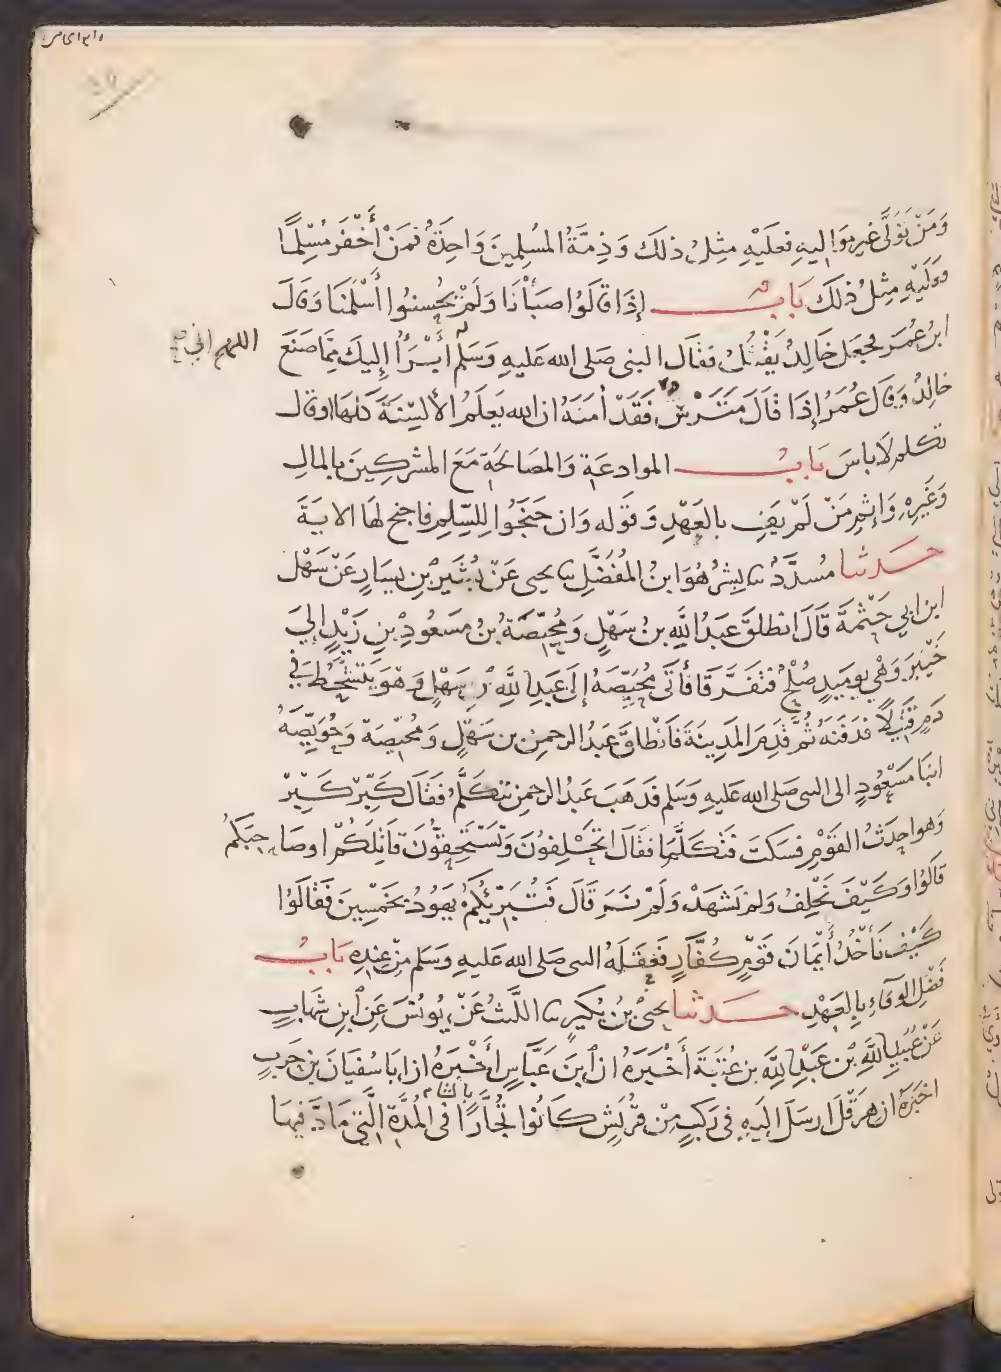 وَمَنْ تَوَلَّى غير مَوَاليهِ فعَلَيْهِ مِثلُ ذلكَ وَذِمَّةُ المُسْلِمِينَ وَاحِدَةٌ فمَنْ أَخْفَرَ مُسْلِمًا
فعَلَيْهِ مِثلُ ذلكَ بَابٌ إذَا قالُوا صَبَأْنَا وَلَمْ يُحْسِنُوا أَسْلَمْنَا وَقَالَ
ابنُ عُمَرَ فجعَلَ خَالِدٌ يَقْتُلُ فقَالَ النبى صَلى الله عَليهِ وَسَلم أَبْرَأُ إِلَيكَ مِمَّا صَنَعَ
اللهم إني
خالِدٌ وَقالَ عُمَرُ إِذَا قَالَ مَتَرْسْ فَقَدْ آمَنَهُ ان الله يَعلَمُ الألْسِنَةَ كلهَا وقال
تكلم لا باسَ بَابُ الموادعَةِ وَالمصَالحَةِ مَعَ المشركِينَ بالمالِ
وَغَيرِهِ وَإثمِ مَنْ لَمْ يَفِ بالعَهْدِ وَقوله وَان جَنَحُوا لِلسَّلمِ فاجنح لهَا الايةَ
حَدثنا مُسدَّدٌ نا بِشْرٌ هُوَ ابنُ المُفَضَّلِ نا يحيى عَنْ بُشَيرِ بنِ يسَارٍ عَنْ سَهْلِ
ابن ابي حَثْمَةَ قَالَ انطلقَ عَبدُ اللَّهِ بنُ سَهْلٍ وَمُحَيِّصَةُ بنُ مَسعُودِ بنِ زَيْدٍ إليَ
خَيْبَرَ وَهْيَ يومَيذٍ صُلْحٌ فتَفَرَّقَا فأَتَى مُحَيِّصَةُ إلَى عَبدِ اللَّهِ بنِ سَهْلٍ وَهْوَ يَتَشَحَّطُ فِي
دَمٍ قَتِيلًا فدَفَنَهُ ثُمَّ قَدِمَ المَدِينَةَ فَانْطَلَقَ عَبدُ الرحمنِ بن سَهْلٍ وَمُحَيِّصَةُ وَحُوَيِّصَةُ
ابْنَا مَسْعُودٍ الى النبى صَلى الله عَليهِ وَسَلم فذَهَبَ عَبدُ الرحمنِ يَتكَلَّمُ فقَالَ كَبِّرْ كَبِّرْ
وَهو احدَثُ القَوْمِ فسَكتَ فتَكَلَّمَا فقَالَ اتَحْلِفُونَ وَتَسْتَحِقُّونَ قَاتِلَكُمْ او صَاحِبَكُمْ
قَالُوا وَكَيْفَ نَحْلِفُ وَلم نَشهَدْ وَلَمْ نَرَ قَالَ فَتُبَرِّئُكُمْ يَهُودُ بخَمْسِينَ فَقَالُوا
كَيْفَ نَأخُذُ أَيْمَانَ قَوْمٍ كُفَّارٍ فَعَقَلَهُ النبى صَلى الله عَليهِ وَسَلم مِنْ عِنْدِهِ بَابُ
فَضْلِ الوَفَاءِ بِالعَهْدِ حَدثنا يحيَى بنُ بُكَيرٍ نا اللَّيْثُ عَنْ يُونُسَ عَنِ ابنِ شهَابٍ
عَنْ عُبَيدِ اللَّهِ بْنِ عَبْدِ اللَّهِ بن عُتْبَةَ أَخْبَرَهُ ان ابنَ عَبَّاسٍ أَخْبَرَهُ ان ابَا سُفيَانَ بن حَربٍ
اخبَرَهُ ان هِرَقْلَ ارسَلَ اليَهِ فى رَكبٍ مِنْ قُرَيْشٍ كَانُوا تُجَّارًا بالشام فى المُدَّةِ الَّتِي مَادَّ فِيهَا